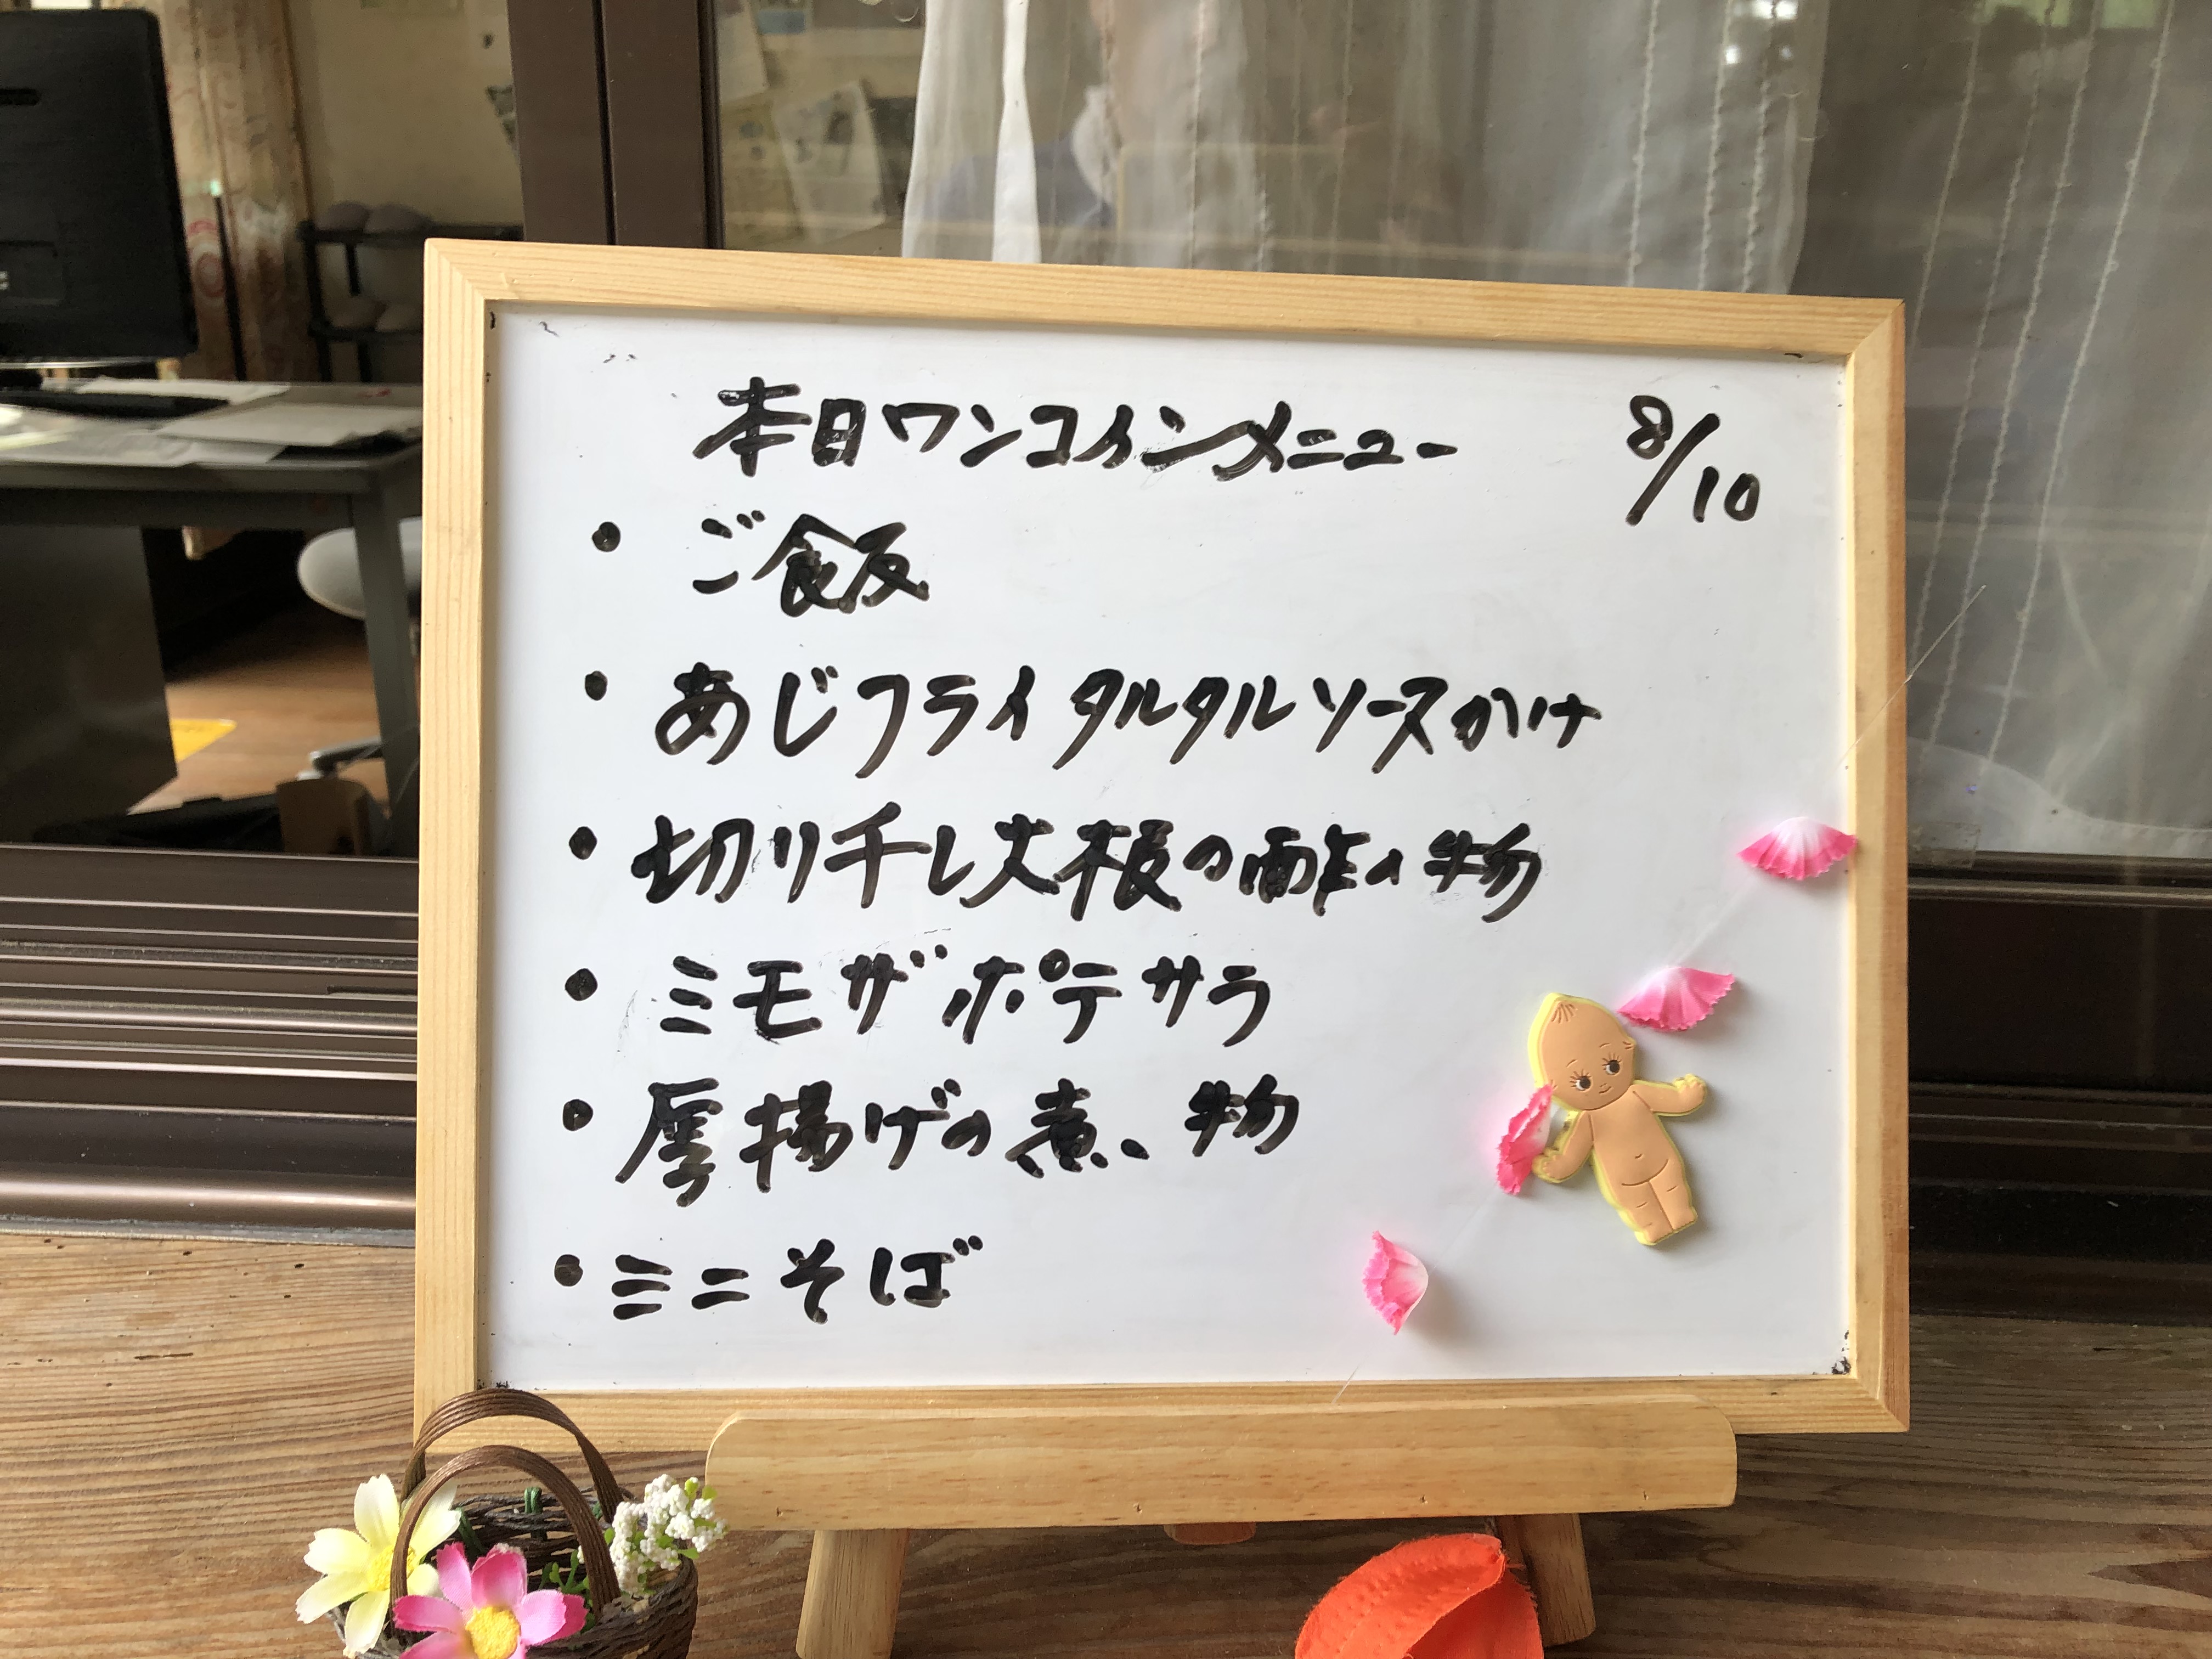 本日ワンコインメニュー 8/10
・ご飯
・あじフライタルタルソースかけ
・切り干し大根の酢の物
・ミモザポテサラ
・厚揚げの煮物
・ミニそば